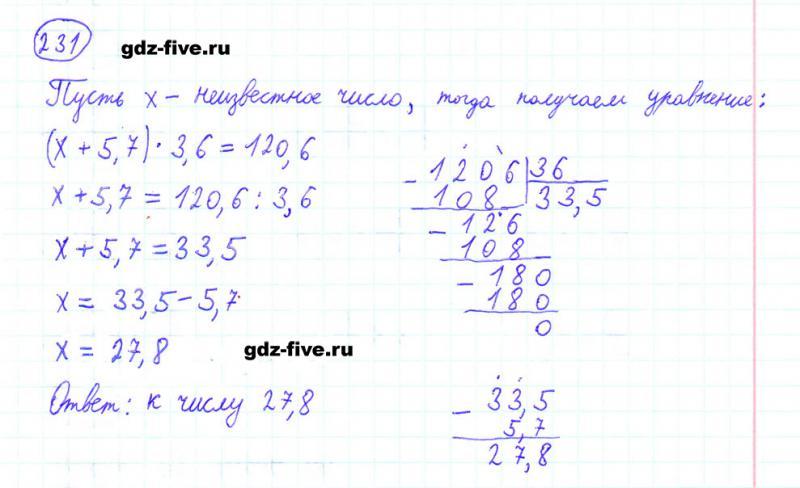 231 gdz-five.ru
Пусть x - неизвестное число, тогда получаем уравнение:
(x + 5,7) · 3,6 = 120,6
x + 5,7 = 120,6 : 3,6
x + 5,7 = 33,5
x = 33,5 - 5,7
x = 27,8
gdz-five.ru
Ответ: к числу 27,8
- 1206 | 36
108 33,5
- 126
108
- 180
180
0
- 33,5
5,7
27,8